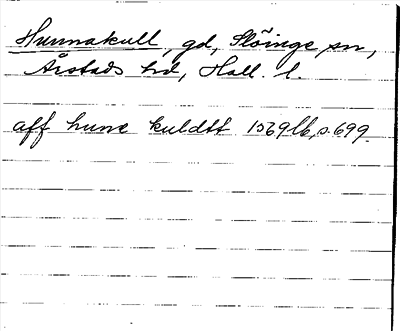 Hunnakull, gd, Slöinge sn,
Årstads hd, Hall. l.
aff hune kuldtt 1569 lb, s. 699.